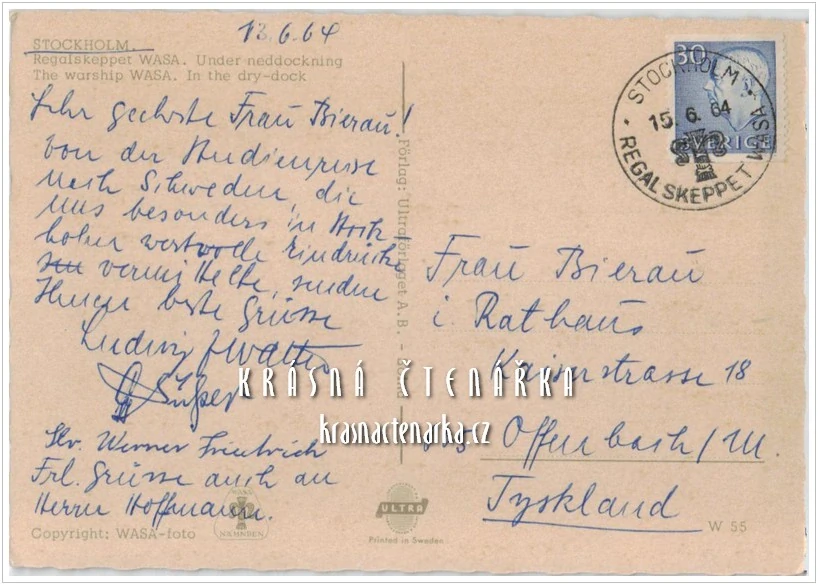 13.6.64
STOCKHOLM.
Regalskeppet WASA. Under neddockning
The warship WASA. In the dry-dock
Sehr geehrte Frau Bierau!
von der Studienreise
nach Schweden, die
uns besonders in Stock-
holm wertvolle Eindrücke
vermittelte, senden
Ihnen beste Grüsse
Ludwig Walter
Werner Friedrich
Frl. Grüsse auch an
Herrn Hoffmann.
Copyright: WASA-foto
WASA
NÄMNDEN
Förlag: Ultraförlaget A.B. -
ULTRA
Printed in Sweden
30
SVERIGE
STOCKHOLM
15.6.64
REGALSKEPPET WASA
Frau Bierau
i. Rathaus
Kaiserstrasse 18
Offenbach/M.
Tyskland
W 55
KRÁSNÁ ČTENÁŘKA
krasnactenarka.cz